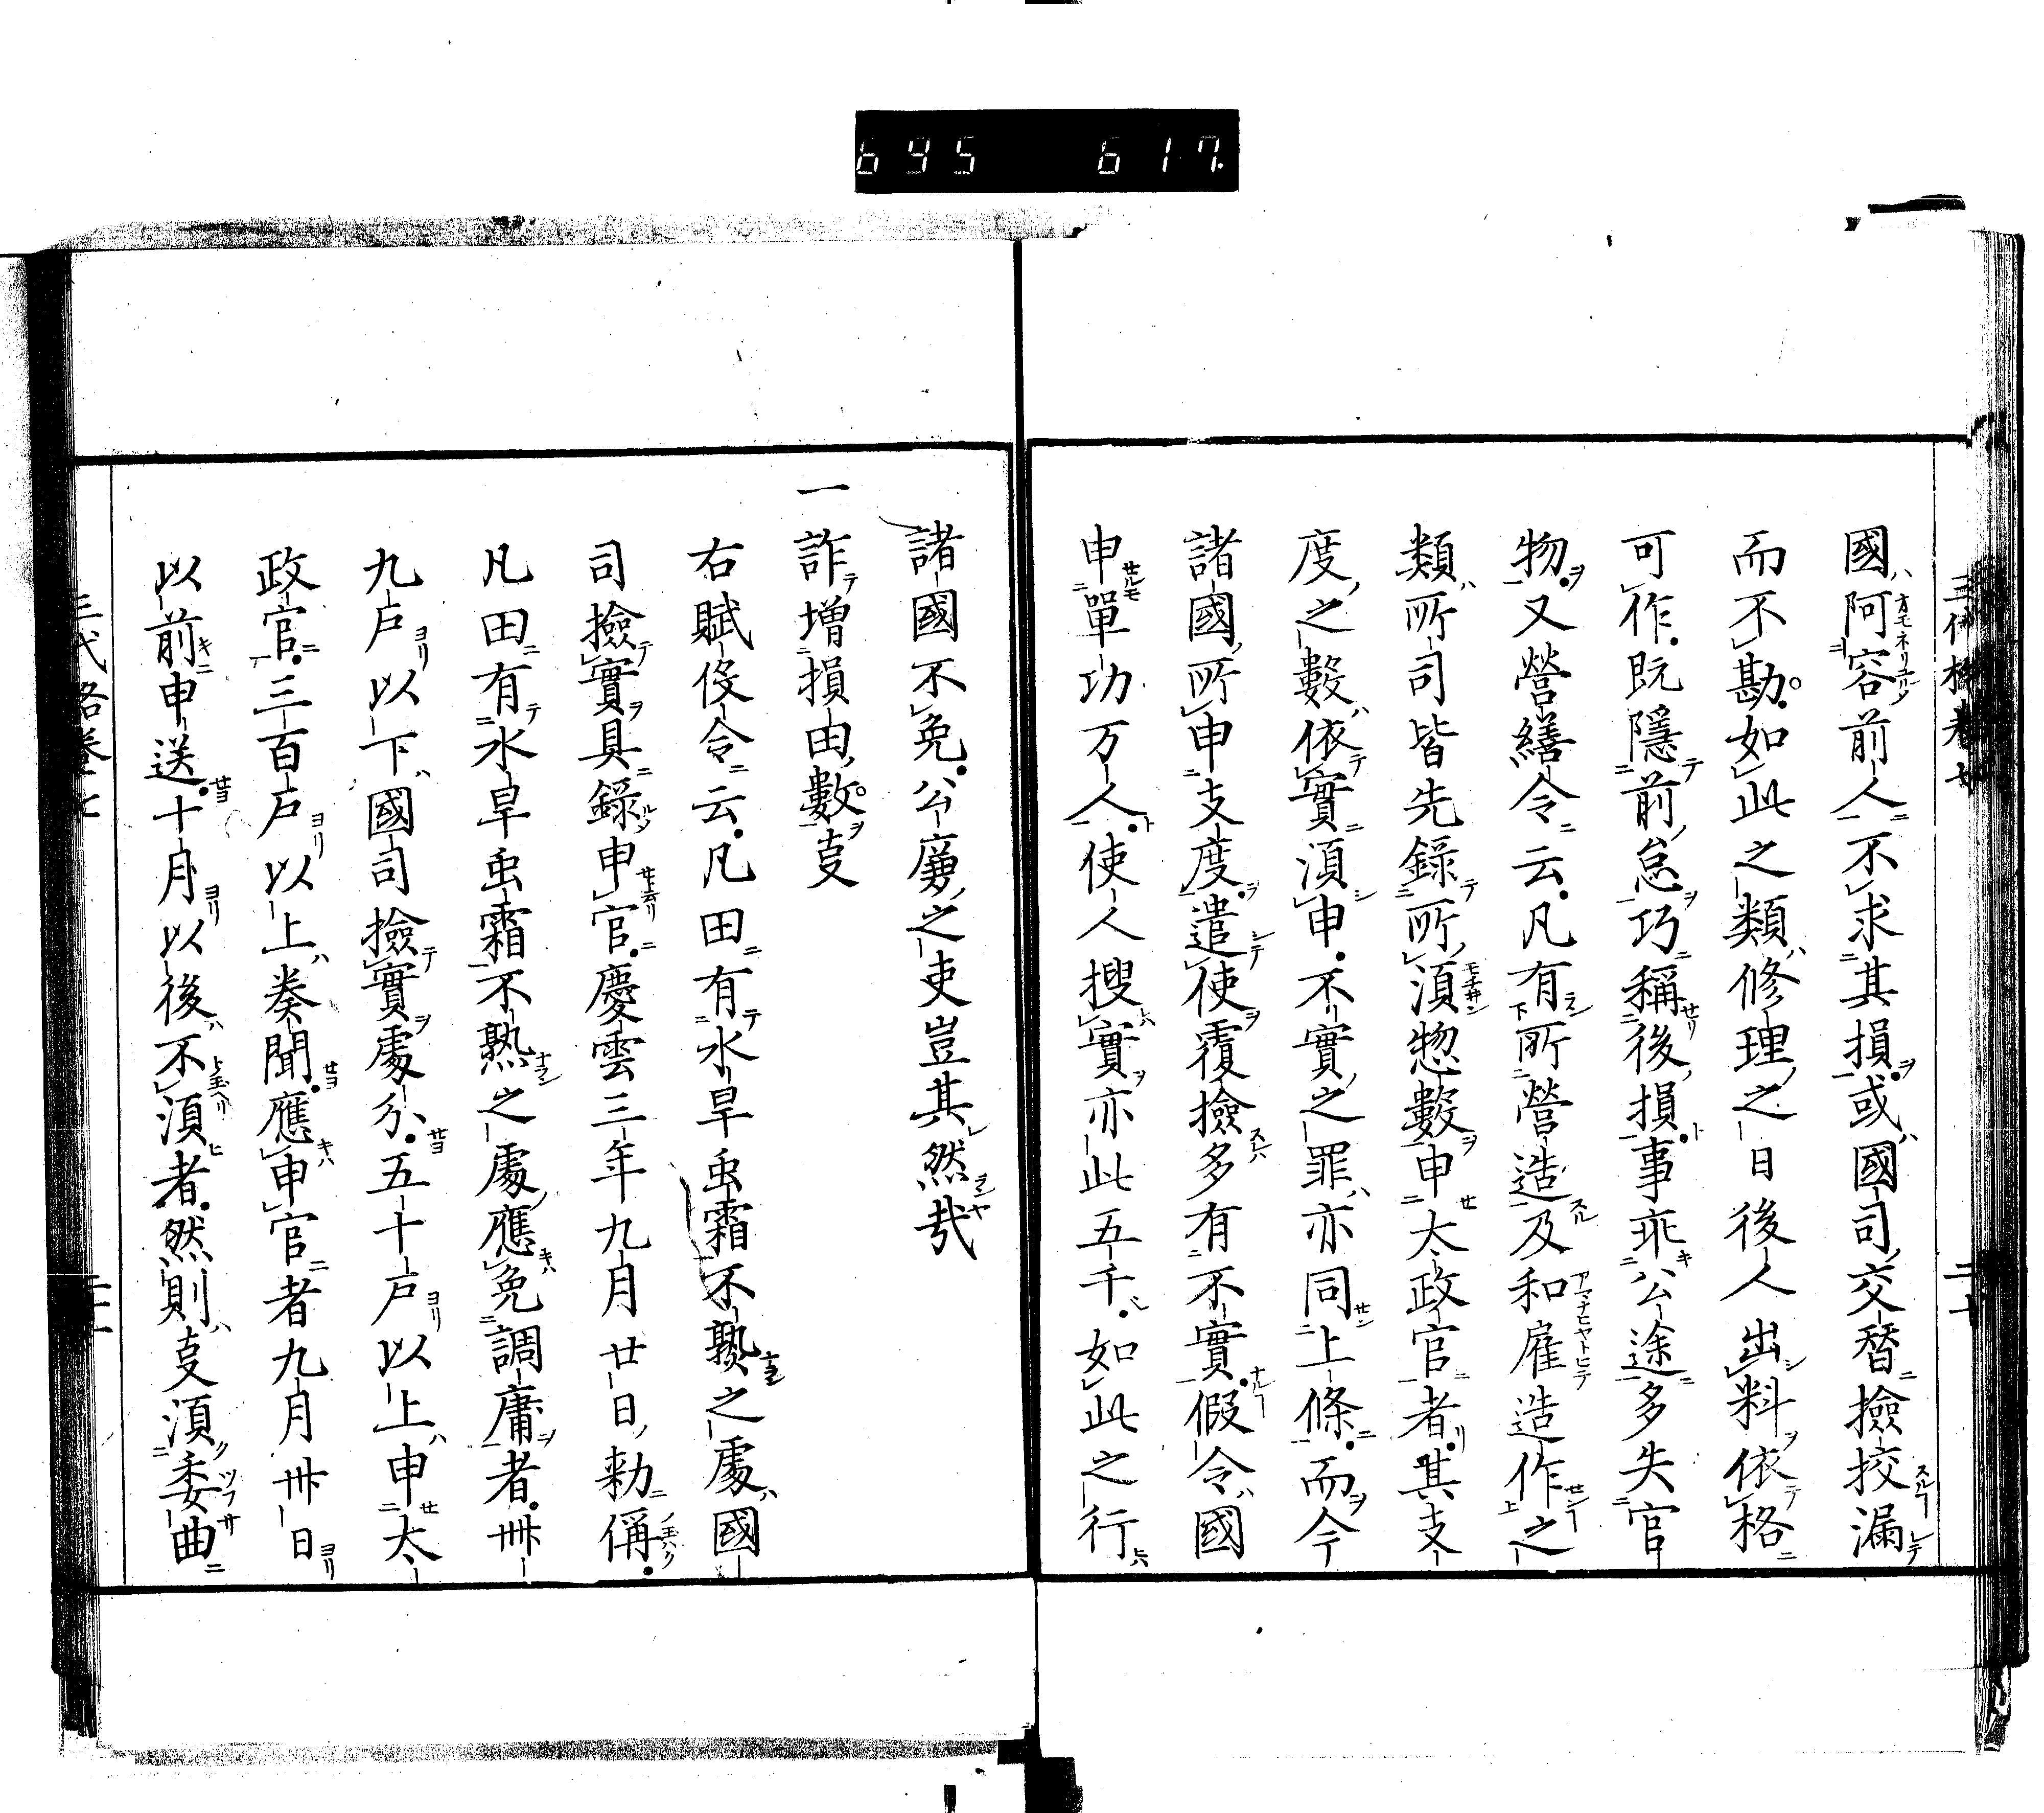 695 617
三代格卷七
二十
國阿容前人不求其損或國司交替撿挍漏
而不勘如此之類修理之日後人出料依格
可作既隱前怠巧稱後損事乖公途多失官
物又營繕令云凡有所營造及和雇造作之
類所司皆先錄所須惣數申太政官者其支
度之數依實須申不實之罪亦同上條而今
諸國所申支度遣使覆撿多有不實假令國
申單功万人使人搜實亦此五千如此之行
諸國不免公廉之吏豈其然哉
一詐增損由數㕝
右賦役令云凡田有水旱虫霜不熟之處國
司撿實具錄申官慶雲三年九月廿日勅偁
凡田有水旱虫霜不熟之處應免調庸者卌
九戶以下國司撿實處分五十戶以上申太
政官三百戶以上奏聞應申官者九月卅日
以前申送十月以後不須者然則㕝須委曲
三代格卷七